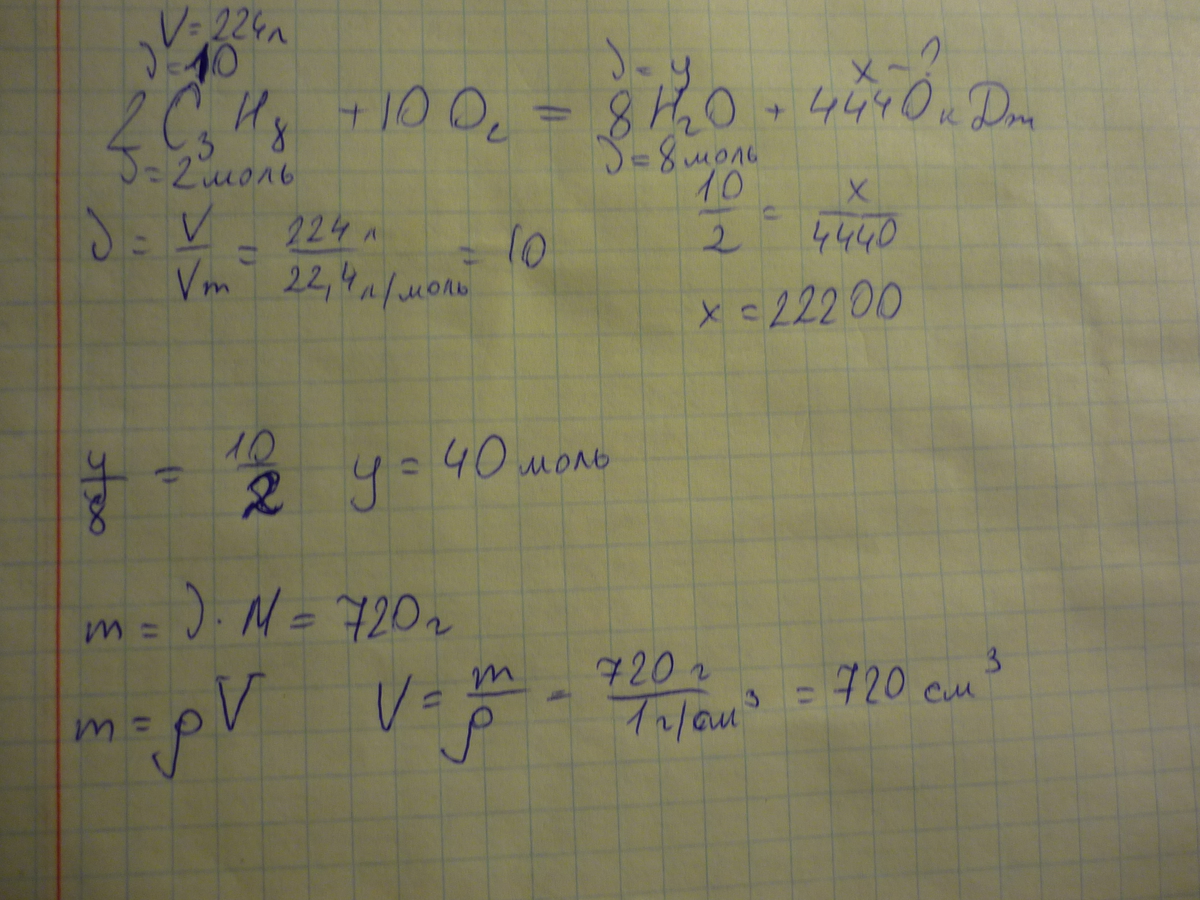 V = 224 л
ν = 10
ν = y
x - ?
2 C₃H₈ + 10 O₂ = 8 H₂O + 4440 кДж
ν = 2 моль
ν = 8 моль
10/2 = x/4440
ν = V/Vm = 224 л/22,4 л/моль = 10
x = 22200
y/8 = 10/2 y = 40 моль
m = ν · M = 720 г
m = ρV V = m/ρ = 720 г/1 г/см³ = 720 см³